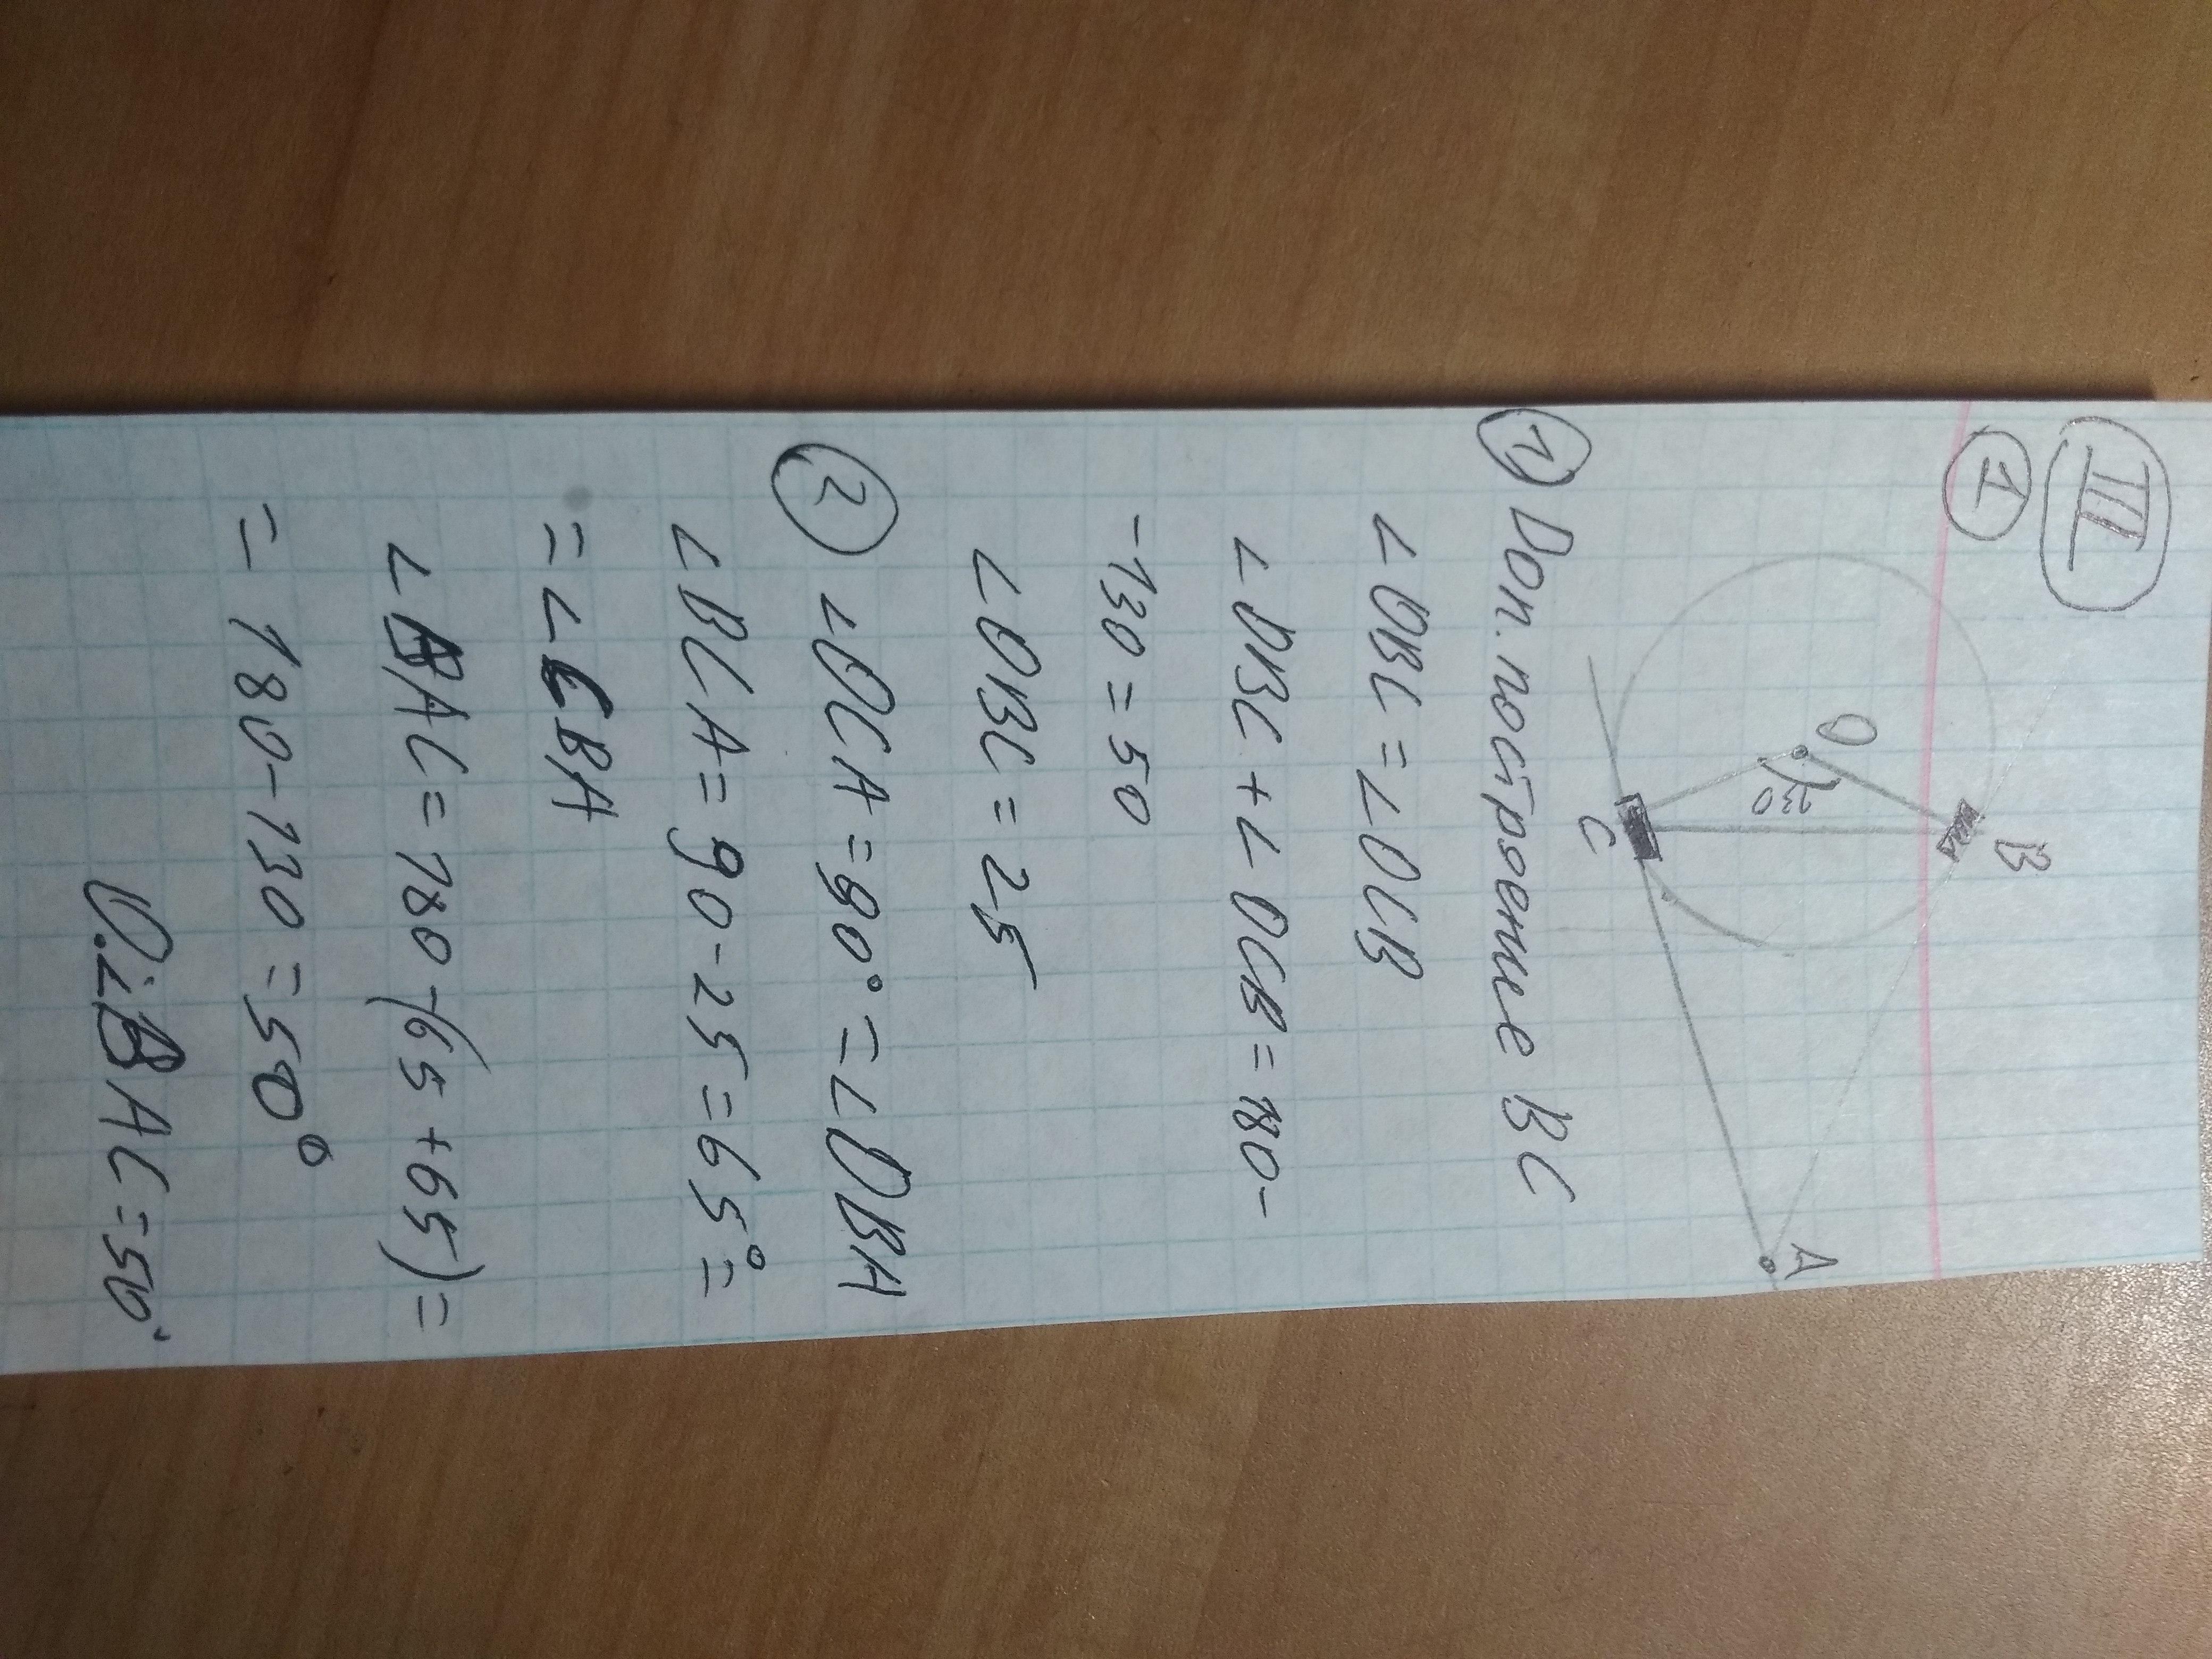 III
1
B
O
130
C
A
1 Доп. построение BC
∠OBC = ∠OCB
∠OBC + ∠OCB = 180-
-130 = 50
∠OBC = 25
2 ∠OCA = 90° = ∠OBA
∠BCA = 90-25 = 65° =
= ∠CBA
∠BAC = 180-(65+65) =
= 180-130 = 50°
O: ∠BAC = 50°